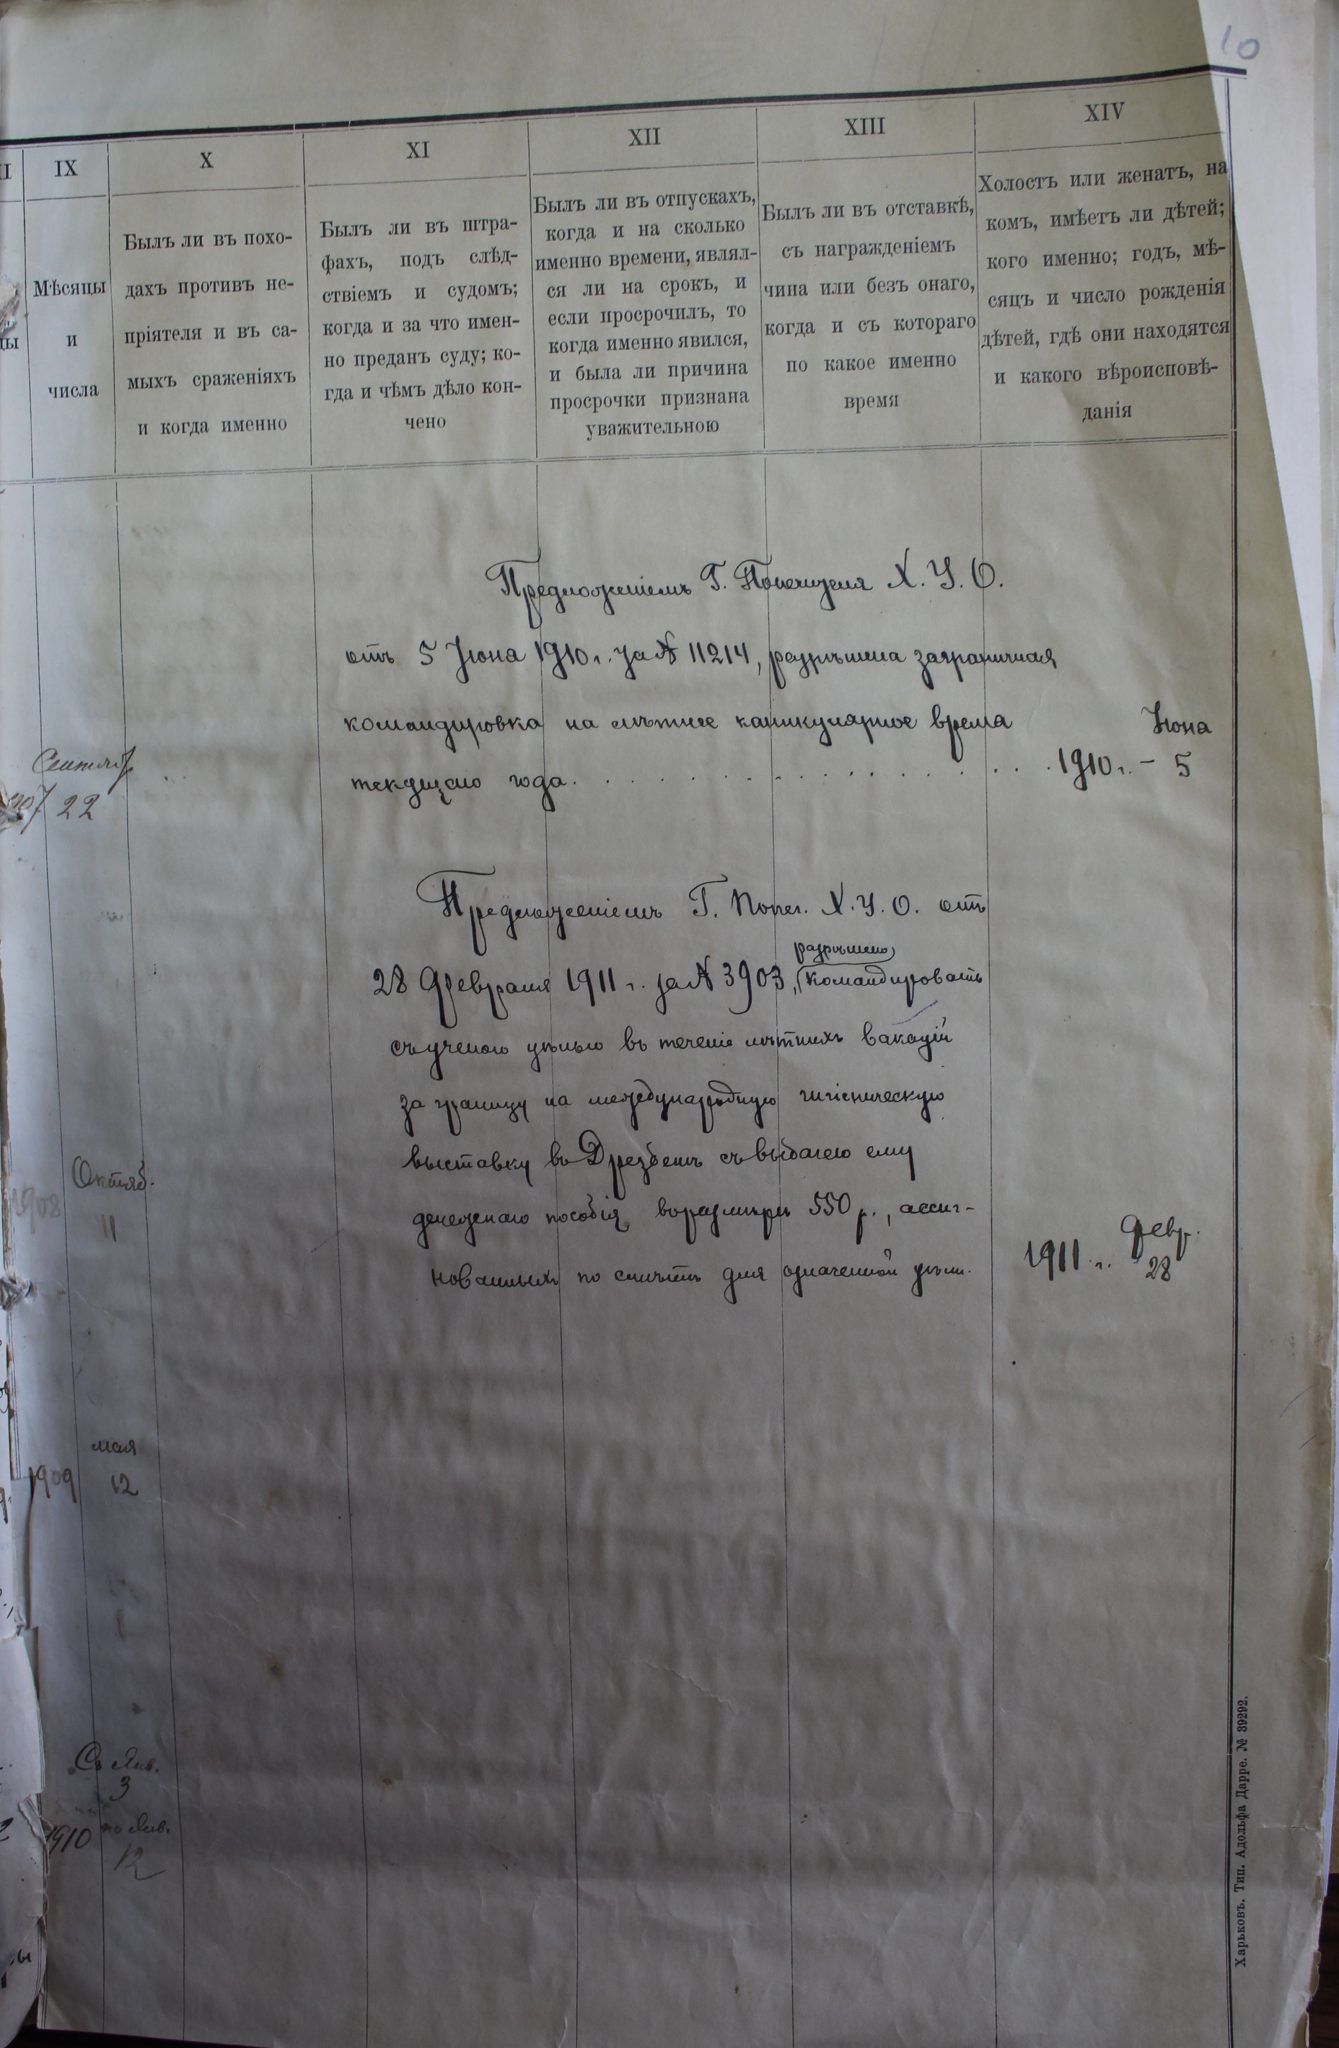 10
IX
X
XI
XII
XIII
XIV
Мѣсяцы
и
числа
Былъ ли въ похо-
дахъ противъ не-
пріятеля и въ са-
мыхъ сраженіяхъ
и когда именно
Былъ ли въ штра-
фахъ, подъ слѣд-
ствіемъ и судомъ;
когда и за что имен-
но преданъ суду; ко-
гда и чѣмъ дѣло кон-
чено
Былъ ли въ отпускахъ,
когда и на сколько
именно времени, являл-
ся ли на срокъ, и
если просрочилъ, то
когда именно явился,
и была ли причина
просрочки признана
уважительною
Былъ ли въ отставкѣ,
съ награжденіемъ
чина или безъ онаго,
когда и съ котораго
по какое именно
время
Холостъ или женатъ, на
комъ, имѣетъ ли дѣтей;
кого именно; годъ, мѣ-
сяцъ и число рожденія
дѣтей, гдѣ они находятся
и какого вѣроисповѣ-
данія
Предложеніемъ Г. Попечителя Х. У. О.
отъ 5 Іюня 1910 г. за № 11214, разрѣшена заграничная
командировка на лѣтнее каникулярное время
текущаго года. . . . . . . . . . . . . . . .
Іюня
1910 г. – 5
Сентяб.
22
Предложеніемъ Г. Попеч. Х. У. О. отъ
разрѣшено
28 Февраля 1911 г. за № 3903, командировать
съ ученою цѣлью въ теченіе лѣтнихъ вакацій
за границу на международную гигіеническую
выставку въ Дрезденъ съ выдачею ему
денежнаго пособія въ размѣрѣ 550 р., ассиг-
нованныхъ по смѣтѣ для означенной цѣли.
Февр.
1911 г. 28
Октяб.
1908 11
мая
1909 12
Съ Янв.
3
по Янв.
1910 12
Харьковъ. Тип. Адольфа Дарре. № 39292.